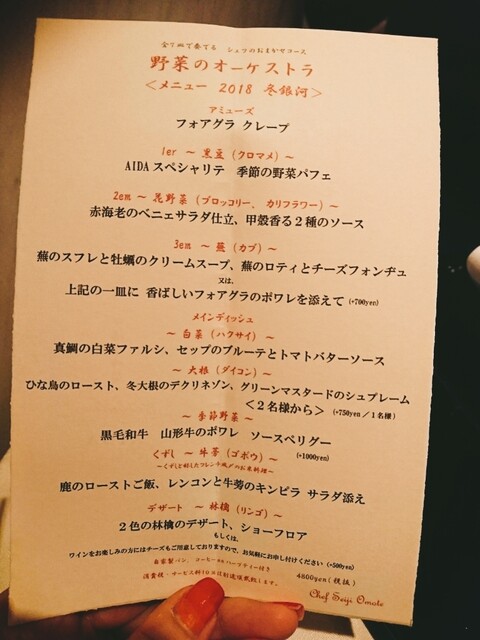 全7皿で奏でる シェフのおまかせコース
野菜のオーケストラ
＜メニュー 2018 冬銀河＞
アミューズ
フォアグラ クレープ
1er ～ 黒豆（クロマメ）～
AIDAスペシャリテ 季節の野菜パフェ
2em ～ 花野菜（ブロッコリー、カリフラワー）～
赤海老のベニェサラダ仕立、甲殻香る２種のソース
3em ～ 蕪（カブ）～
蕪のスフレと牡蠣のクリームスープ、蕪のロティとチーズフォンデュ
又は、
上記の一皿に 香ばしいフォアグラのポワレを添えて (+700yen)
メインディッシュ
～ 白菜（ハクサイ）～
真鯛の白菜ファルシ、セップのブルーテとトマトバターソース
～ 大根（ダイコン）～
ひな鳥のロースト、冬大根のデクリネゾン、グリーンマスタードのシュプレーム
＜２名様から＞ (+750yen /１名様)
～ 季節野菜 ～
黒毛和牛 山形牛のポワレ ソースペリグー
(+1000yen)
くずし ～ 牛蒡（ゴボウ）～
～くずし

鹿のローストご飯、レンコンと牛蒡のキンピラ サラダ添え
デザート ～ 林檎（リンゴ）～
２色の林檎のデザート、ショーフロア
もしくは、
ワインをお楽しみの方にはチーズもご用意しておりますので、お気軽にお申し付けください (+500yen)
自家製パン、コーヒーまたはハーブティー付き
4800yen(税抜)
消費税・サービス料10％は別途頂戴致します。
Chef Seiji Omote